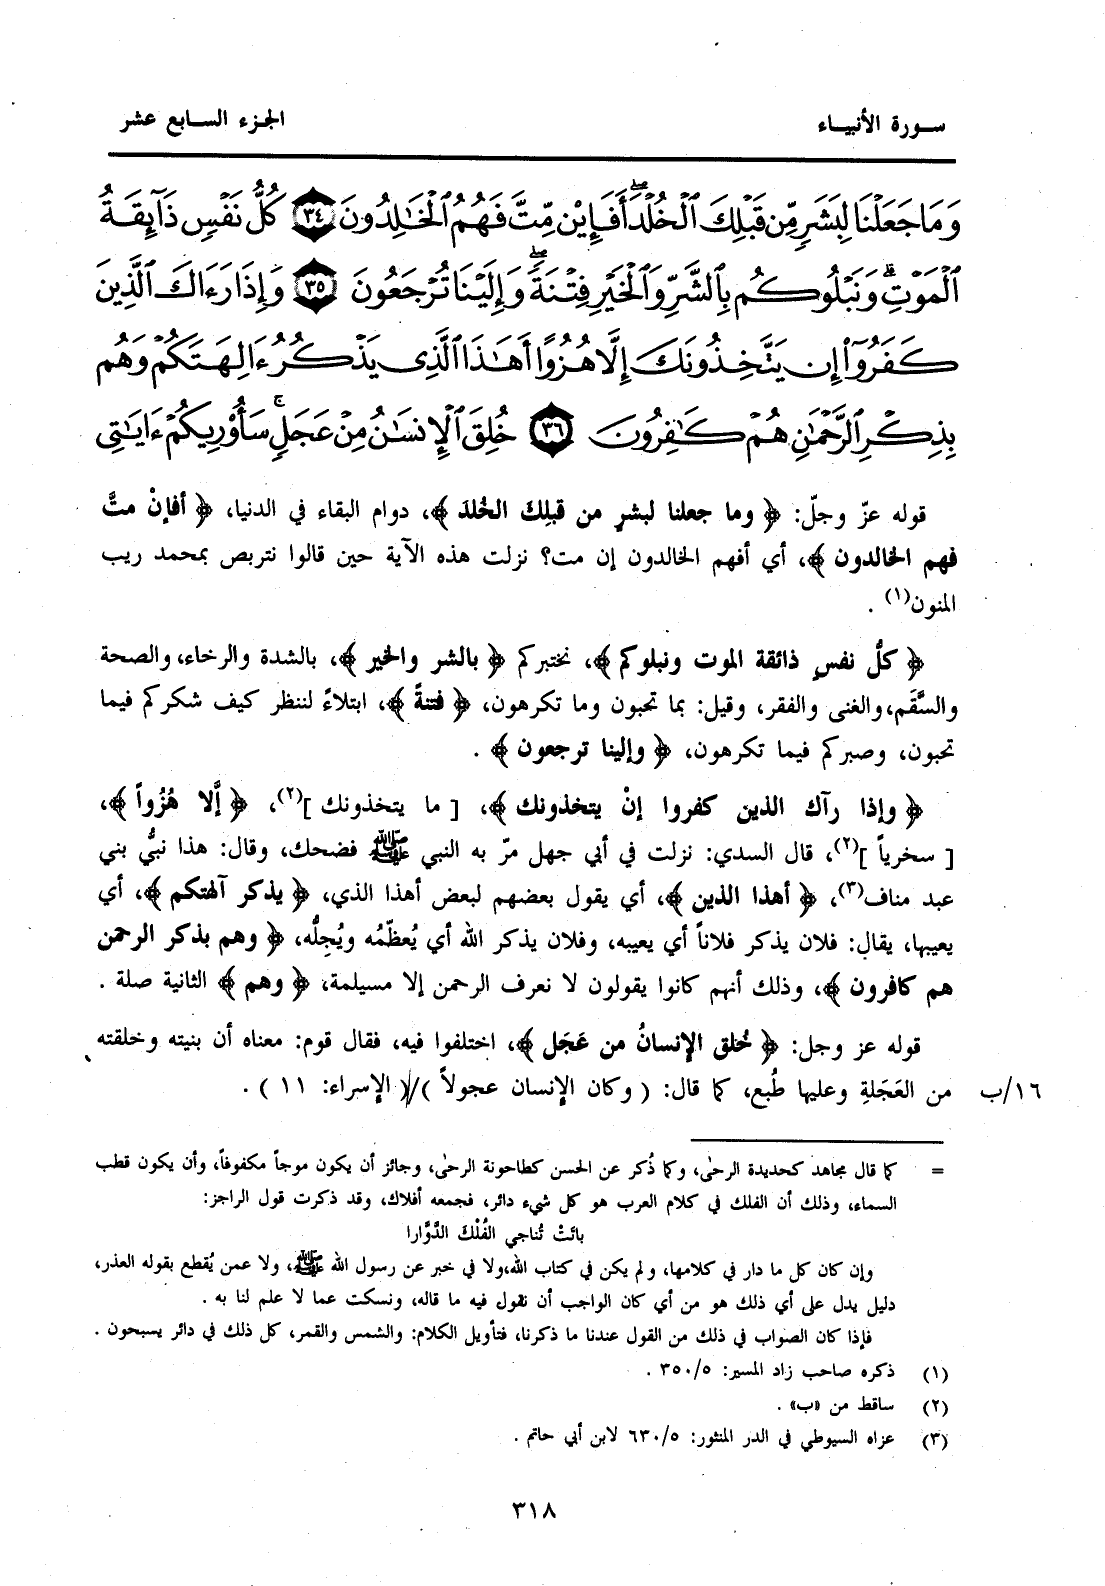 سـورة الأنبيـاء
الجـزء السـابع عشر
وَمَا جَعَلْنَا لِبَشَرٍ مِّن قَبْلِكَ ٱلْخُلْدَ ۖ أَفَإِي۟ن مِّتَّ فَهُمُ ٱلْخَٰلِدُونَ ٣٤ كُلُّ نَفْسٍ ذَآئِقَةُ
ٱلْمَوْتِ ۗ وَنَبْلُوكُم بِٱلشَّرِّ وَٱلْخَيْرِ فِتْنَةً ۖ وَإِلَيْنَا تُرْجَعُونَ ٣٥ وَإِذَا رَءَاكَ ٱلَّذِينَ
كَفَرُوٓا۟ إِن يَتَّخِذُونَكَ إِلَّا هُزُوًا أَهَٰذَا ٱلَّذِى يَذْكُرُ ءَالِهَتَكُمْ وَهُم
بِذِكْرِ ٱلرَّحْمَٰنِ هُمْ كَٰفِرُونَ ٣٦ خُلِقَ ٱلْإِنسَٰنُ مِنْ عَجَلٍ ۚ سَأُو۟رِيكُمْ ءَايَٰتِى
قوله عزّ وجلّ: ﴿ وما جعلنا لبشرٍ من قبلِكَ الخُلدَ ﴾، دوام البقاء في الدنيا، ﴿ أفإنْ متَّ
فهم الخالدون ﴾، أي أفهم الخالدون إن مت؟ نزلت هذه الآية حين قالوا نتربص بمحمد ريب
المنون(١) .
﴿ كلُّ نفسٍ ذائقة الموت ونبلوكم ﴾، نختبركم ﴿ بالشر والخير ﴾، بالشدة والرخاء، والصحة
والسَّقَم، والغنى والفقر، وقيل: بما تحبون وما تكرهون، ﴿ فتنةً ﴾، ابتلاءً لننظر كيف شكركم فيما
تحبون، وصبركم فيما تكرهون، ﴿ وإلينا ترجعون ﴾ .
﴿ وإذا رآك الذين كفروا إنْ يتخذونك ﴾، [ ما يتخذونك ](٢)، ﴿ إلَّا هُزُواً ﴾،
[ سخرياً ](٢)، قال السدي: نزلت في أبي جهل مرّ به النبي ﷺ فضحك، وقال: هذا نبيُّ بني
عبد مناف(٣)، ﴿ أهذا الذين ﴾، أي يقول بعضهم لبعض أهذا الذي، ﴿ يذكر آلهتكم ﴾، أي
يعيبها، يقال: فلان يذكر فلاناً أي يعيبه، وفلان يذكر الله أي يُعظّمُه ويُجِلُّه، ﴿ وهم بذكر الرحمن
هم كافرون ﴾، وذلك أنهم كانوا يقولون لا نعرف الرحمن إلا مسيلمة، ﴿ وهم ﴾ الثانية صلة .
قوله عز وجل: ﴿ خُلق الإنسانُ من عَجَل ﴾، اختلفوا فيه، فقال قوم: معناه أن بنيته وخلقته
١٦/ب من العَجَلةِ وعليها طُبع، كما قال: ( وكان الإنسان عجولاً ) ( الإسراء: ١١ ) .
= كما قال مجاهد كحديدة الرحىٰ، وكما ذُكر عن الحسن كطاحونة الرحىٰ، وجائز أن يكون موجاً مكفوفاً، وأن يكون قطب
السماء، وذلك أن الفلك في كلام العرب هو كل شيء دائر، فجمعه أفلاك، وقد ذكرت قول الراجز:
باتتْ تُناجي الفُلْكَ الدَّوَّارا
وإن كان كل ما دار في كلامها، ولم يكن في كتاب الله، ولا في خبر عن رسول الله ﷺ، ولا عمن يُقطع بقوله العذر،
دليل يدل على أي ذلك هو من أي كان الواجب أن نقول فيه ما قاله، ونسكت عما لا علم لنا به .
فإذا كان الصواب في ذلك من القول عندنا ما ذكرنا، فتأويل الكلام: والشمس والقمر، كل ذلك في دائر يسبحون .
(١) ذكره صاحب زاد المسير: ٣٥٠/٥ .
(٢) ساقط من «ب» .
(٣) عزاه السيوطي في الدر المنثور: ٦٣٠/٥ لابن أبي حاتم .
٣١٨